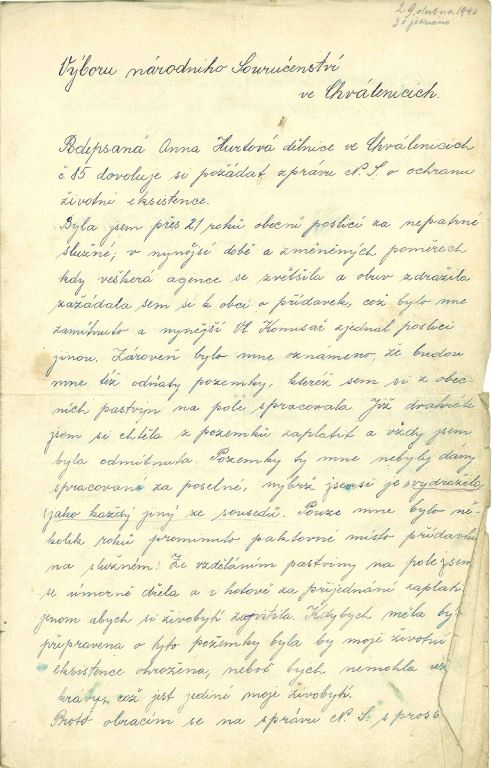 29. dubna 1940
Výboru národního Souručenství
ve Chválenicích.
Podepsaná Anna Hurtová dělnice ve Chválenicích
č 85 dovoluje si požádat zprávu N. S. o ochranu
životní eksistence.
Byla jsem přes 21 roků obecní poslicí za nepatrné
služné; v nynější době a změněných poměrech
kdy veškerá agence se zvětšila a obuv zdražila
zažádala sem si k obci o přídavek, což bylo mne
zamítnuto a nynější Vl. Komisař zjednal poslici
jinou. Zároveň bylo mne oznámeno, že budou
mne též odňaty pozemky, kteréž sem si z obec-
ních pastvyn na pole spracovala. Již drahráte
jsem si chtěla z pozemků zaplatit a vždy jsem
byla odmítnuta. Pozemky ty mne nebyly dány
spracované za poselné, nybrž jsem si je vydražila,
jako každý jiný ze sousedů. Pouze mne bylo ně-
kolik roků prominuto paktovné místo přídavku
na služném. Ze vzděláním pastviny na pole jsem
se úmorně dřela a i hotově za přijednání zaplati
jenom abych si živobytí zajistila. Kdybych měla být
připravena o tyto pozemky byla by moje životní
eksistence ohrožena, neboť bych nemohla
krávy, což jest jediné moje živobytí.
Proto obracím se na správu N. S. s prosb